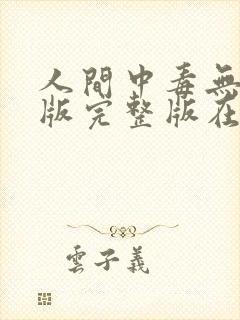 人間中毒無
版完整版在
雲子義